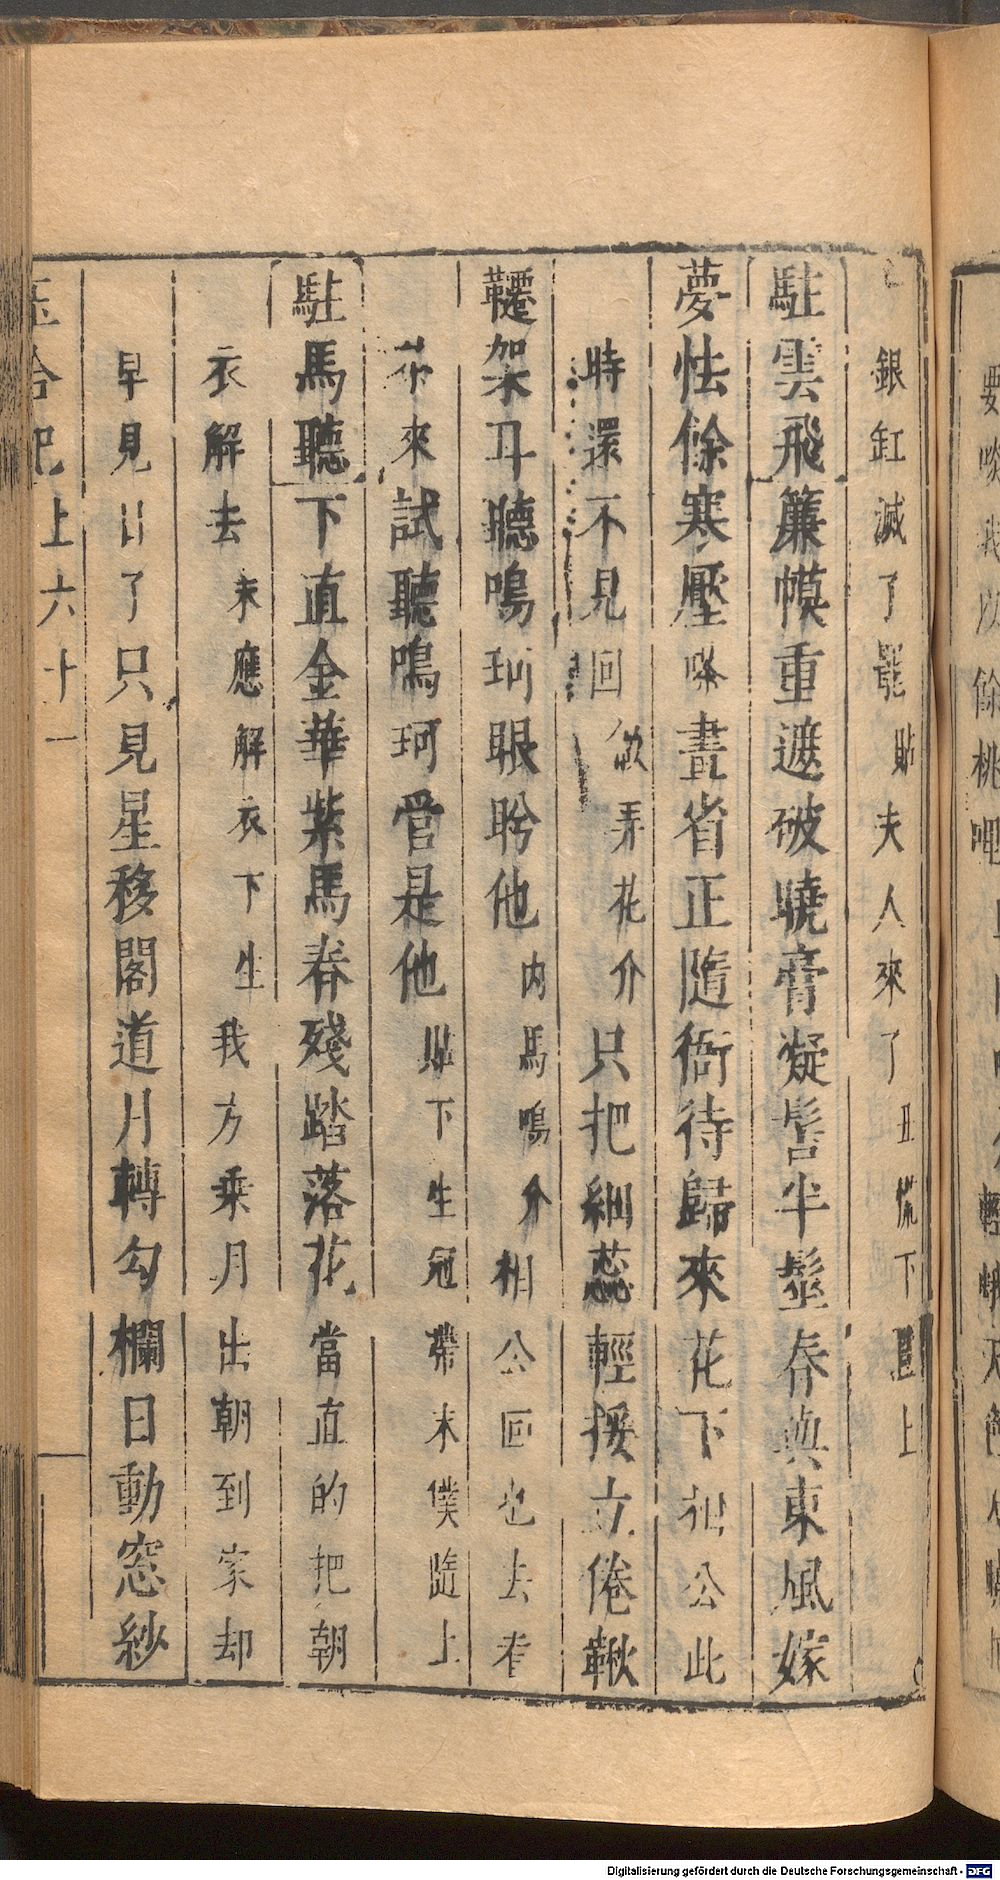 銀缸滅了罷貼夫人來了丑慌下旦上
駐雲飛簾幙重遮破曉膏凝髻半髽春與東風嫁
夢怯餘寒壓嗏晝省正隨衙待歸來花下相公此
時還不見回做弄花介只把細蕊輕援立倦鞦
韆架耳聽鳴珂眼盻他内馬鳴介相公回也去看
來試聽鳴珂當是他貼下生冠帶末僕隨上
駐馬聽下直金華紫馬春殘踏落花當直的把朝
衣解去末應解衣下生我方乘月出朝到家却
早見日了只見星移閣道月轉勾欄日動窓紗
玉合記上六十一
Digitalisierung gefördert durch die Deutsche Forschungsgemeinschaft - DFG